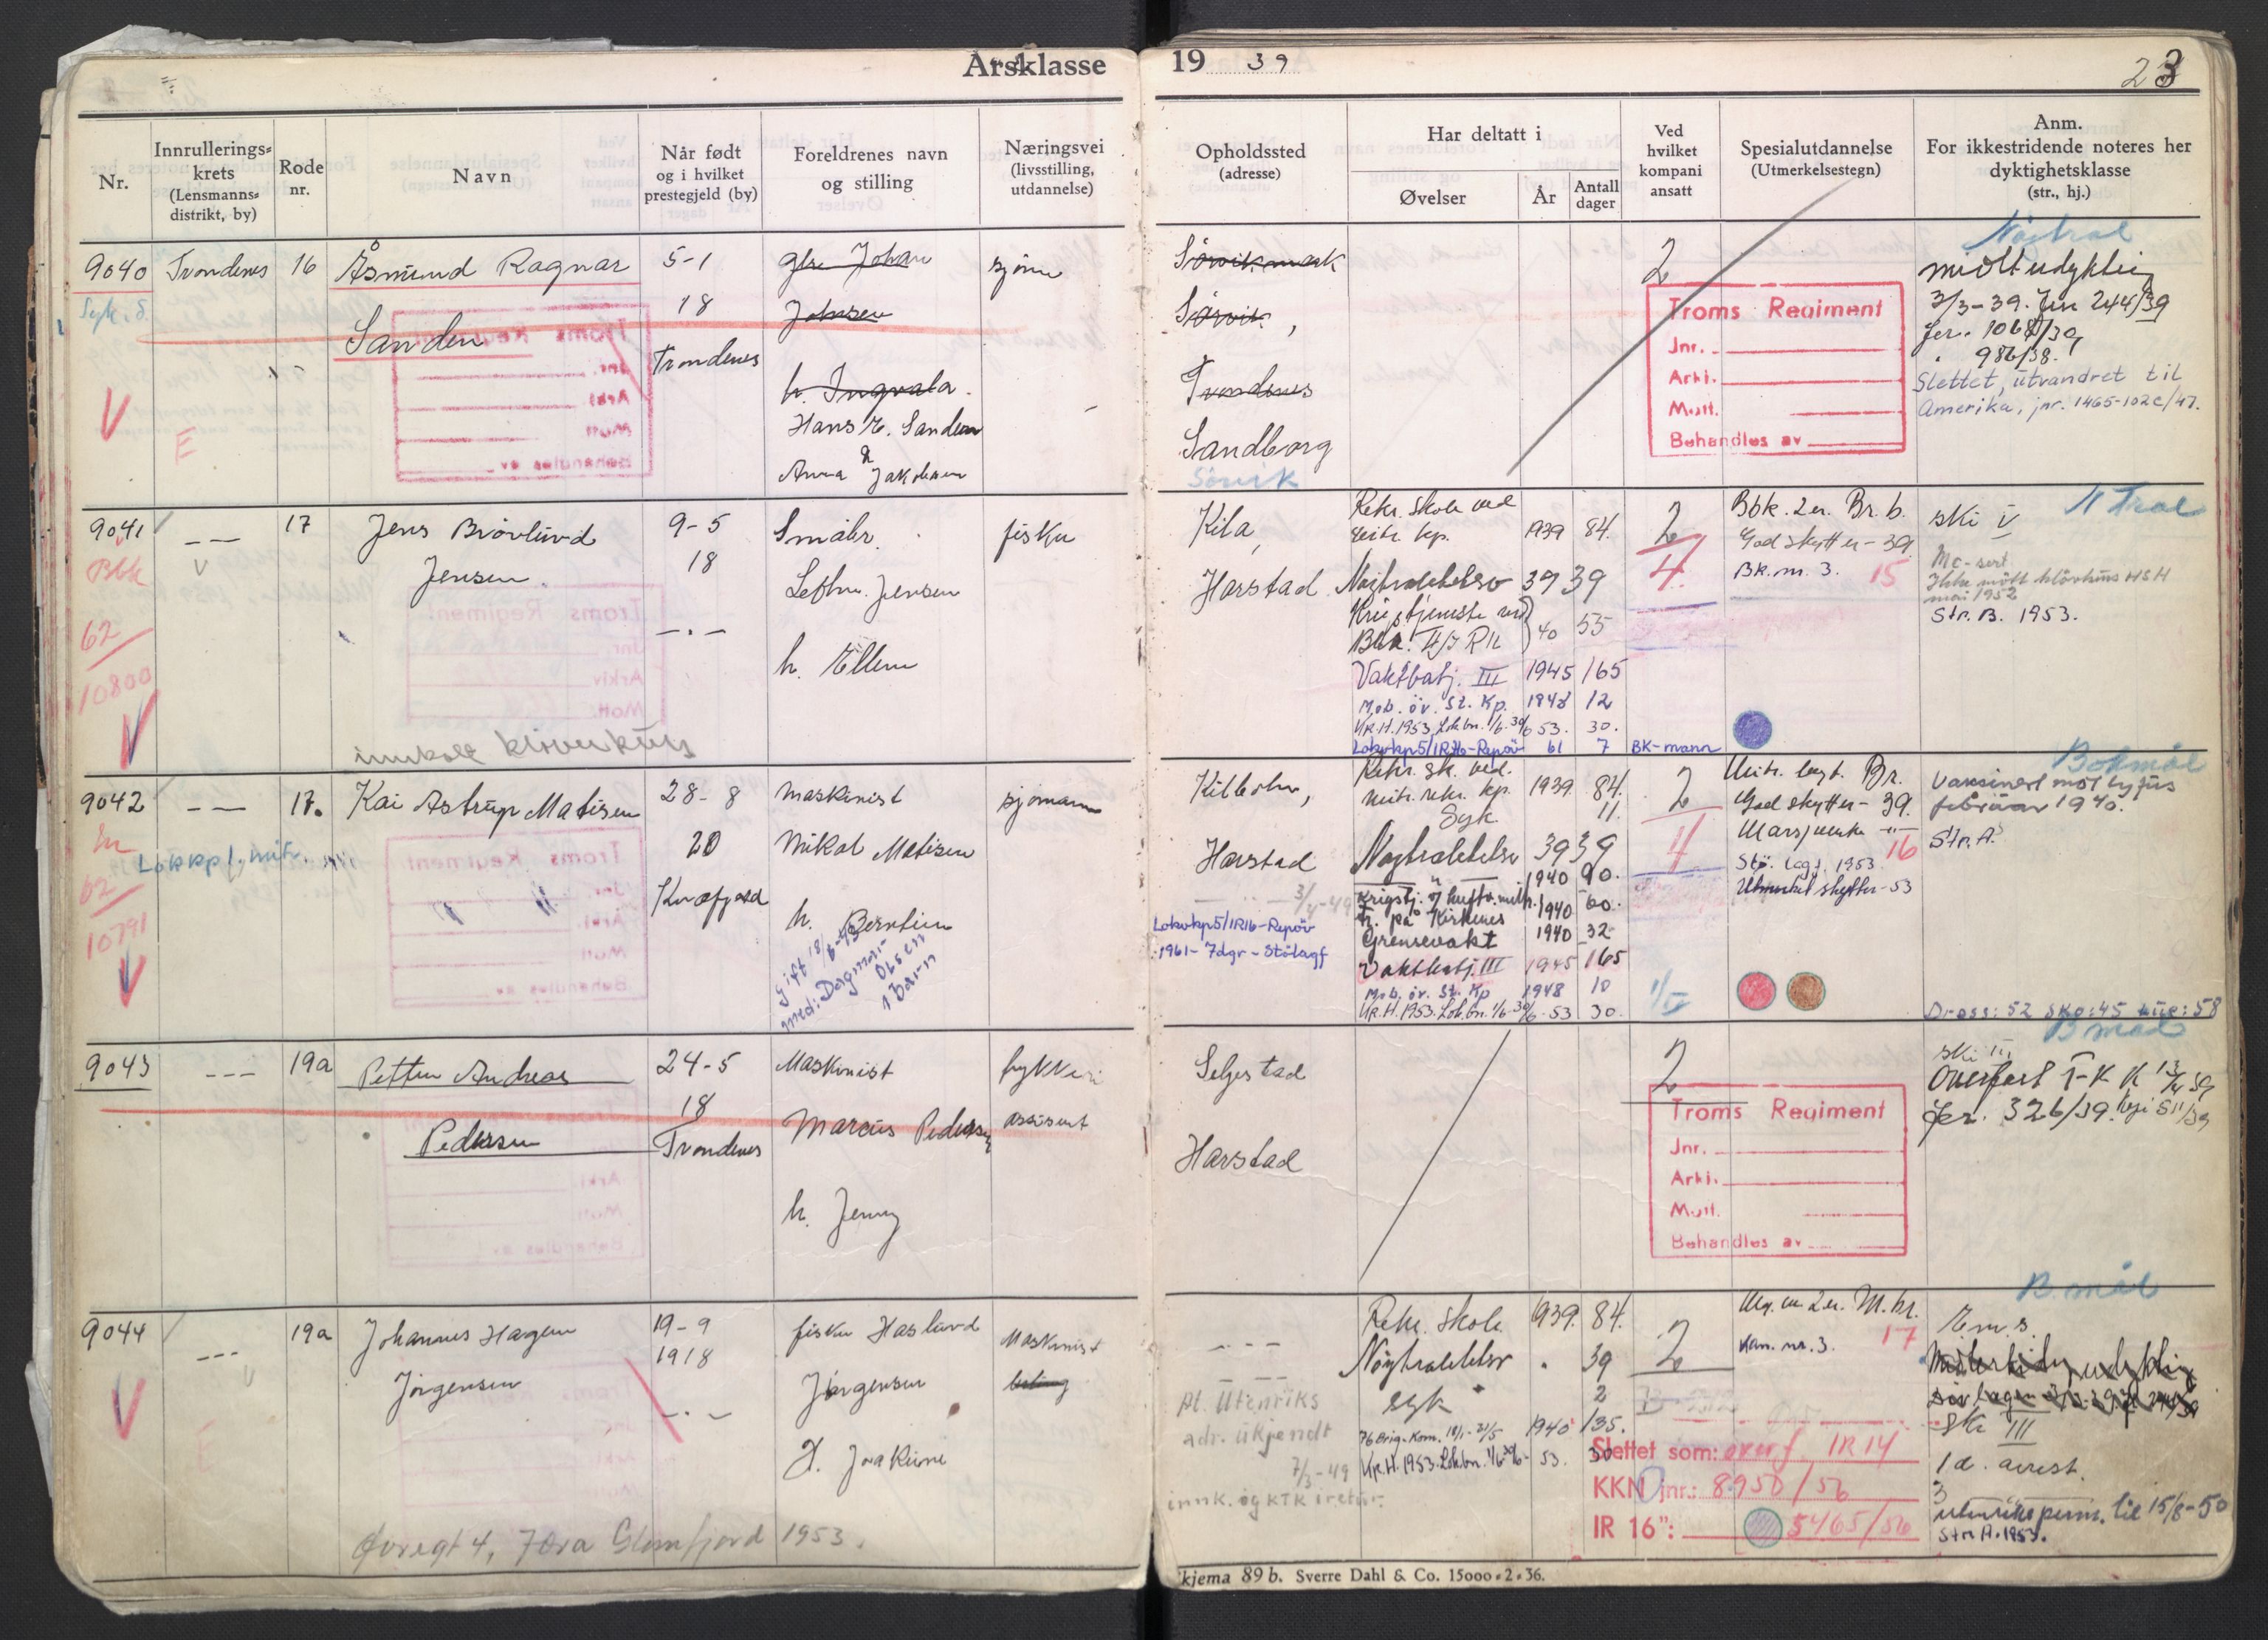 Årsklasse 19 39
23
Nr.
Innrullerings-
krets
(Lensmanns-
distrikt, by)
Rode
nr.
Navn
Når født
og i hvilket
prestegjeld (by)
Foreldrenes navn
og stilling
Næringsvei
(livsstilling,
utdannelse)
Opholdssted
(adresse)
Har deltatt i
Øvelser
År
Antall
dager
Ved
hvilket
kompani
ansatt
Spesialutdannelse
(Utmerkelsestegn)
Anm.
For ikkestridende noteres her
dyktighetsklasse
(str., hj.)
9040
Trondenes
16
Åsmund Ragnar
Sanden
5-1
18
Trondenes
Johan
Johnsen
h. Ingvala
Hans E. Sanden
Anna Jakobsen
E
Sørvikmark
Sørvik,
Trondenes
Sandborg
Sørvik
2
Troms Regiment
Jnr.
Arki.
Mott.
Behandles av
Nøytral
midlt udyktig
3/3-39. Jnr 244/39
986/38.
Slettet, utvandret til
Amerika, jnr. 1465-102c/47.
9041
Bbk
62
10800
17
Jens Brovlund
Jensen.
innkalt kløverkurs
9-5
18
Småbr.
Jensen
h. Ellen
fisker
Kila,
Harstad
Rekr. skole ved
mitr. kp. 1939 84.
Nøytralitetsv 39 39
Krigstjeneste ved
40 55
Vaktbatj. III 1945 165
Mob. öv. St. Kp. 1948 12
KR.H.1953 Lok.bn. 1/6-30/6 53. 30.
Lokvkp5/IR16-Repöv 61 7
2
4
BK-mann
Bbk. 2er. Br. b.
God skytter-39.
Bk. m. 3. 15
N Tral
ski V
Mc-sert
Ikke møtt kløverkurs HSH
mai 1952
Str. B. 1953.
9042
62
10791
Lokkp 1. mitr.
17.
Kai Astrup Matisen
28-8
20
Kvæfjord
Maskinist
Nikol Matisen
h. Berntine
gift 18/6-43
med: Dagmar
Olsen
1 barn
sjømann
Harstad
3/4-49
Lokvkp5/IR16-Repöv
1961-7dgr-Stölagf
Rekr. sk. ved.
mitr. rekr. kp. 1939. 84.
Syk. 11.
Nøytralitetsv 39 39
1940 90.
1940 60.
på Kirkenes
Grensevakt 1940 32
Vaktbatj. III 1945 165
Mob. öv. St. Kp 1948 10
KR.H.1953. Lok.bn. 1/6-30/6-53 30.
2
4
Br.
God skytter-39.
Marsjmerke 16
Stö. lagf. 1953
Utmerket skytter-53
Bokmål
Vaksinert mot tyfus
februar 1940.
Str. A.
Dress: 52 sko: 45 lue: 58
9043
19a
Petter Andreas
Pedersen
24-5
18
Trondenes
Maskinist
Marcus Pedersen
h. Jenny
assisent
Seljestad
Harstad
2
Troms Regiment
Jnr.
Arki.
Mott.
Behandles av
B mål
ski III
Overført T-K K 13/4 39
Jnr. 326/39.
9044
19a
Johannes Hagen
Jörgensen
19-9
1918
fisker Haslund
Jörgensen
H. Joakime
Maskinist
Øvregt 4, 7 Øra Glomfjord 1953.
Pt. Utenriks
adr. ukjendt
7/3-49
innk. og KTK i retur.
Rekr. skole 1939. 84.
Nøytralitetsv 39
syk 2
76 Brig. Kom. 18/1-31/5 1940 135.
KR.H.1953. Lok.bn. 1/6-30/6- 53. 30
2
M.br.
Kan. nr. 3. 17
Slettet som: overf. IR 14
KKN jnr.: 8950/56
IR 16": 5465/56
B. mål
Em. s.
Ski III
1 d. arrest.
utenriksperm. til 15/8-50
Str A. 1953.
Skjema 89 b. Sverre Dahl & Co. 15000-2-36.